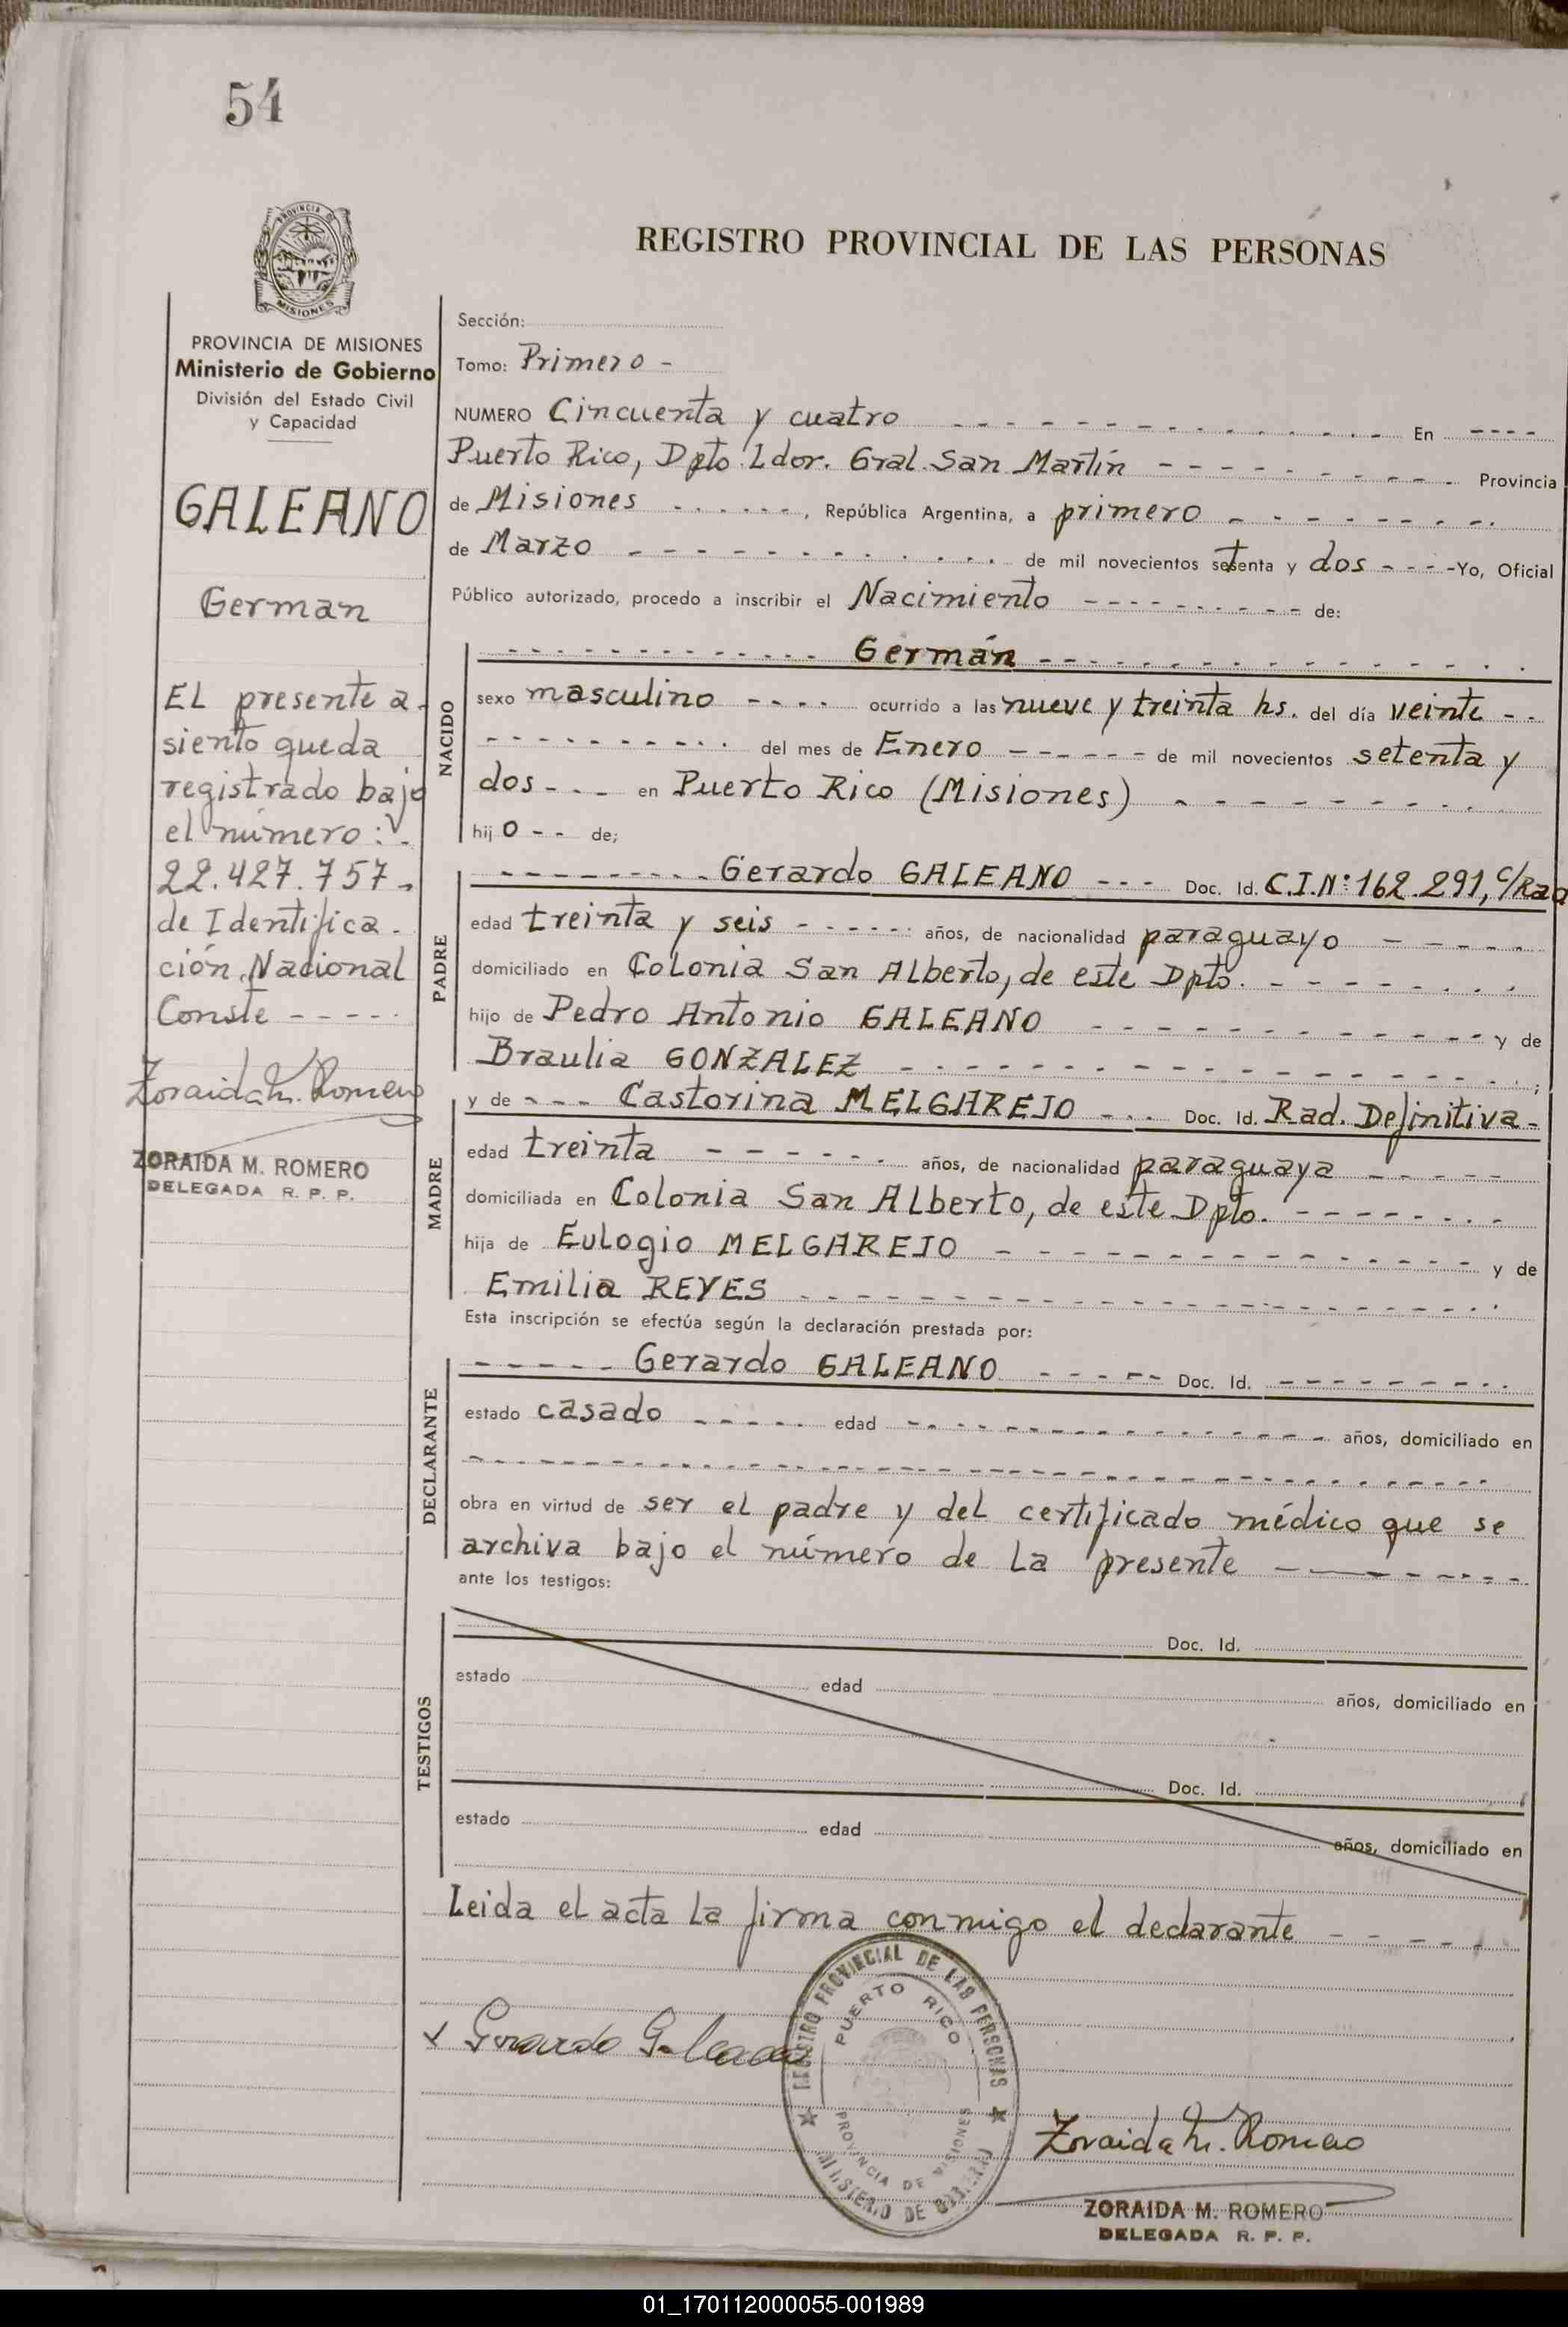 54
PROVINCIA DE
MISIONES
REGISTRO PROVINCIAL DE LAS PERSONAS
PROVINCIA DE MISIONES
Ministerio de Gobierno
División del Estado Civil
y Capacidad
GALEANO
German
EL presente a-
siento queda
registrado bajo
el número:-
22.427.757-
de Identifica-
ción Nacional
Conste -----
Zoraida M. Romero
ZORAIDA M. ROMERO
DELEGADA R. P. P.
Sección:
Tomo: Primero -
NUMERO Cincuenta y cuatro - - - - - - - - - - En ----
Puerto Rico, Dpto Ldor. Gral. San Martín - - - - - - - - - Provincia
de Misiones - - - - - -, República Argentina, a primero - - - - - - - -
de Marzo - - - - - - - - - - - de mil novecientos setenta y dos - - - -Yo, Oficial
Público autorizado, procedo a inscribir el Nacimiento - - - - - - - - - - de:
NACIDO
- - - - - - - - - - - - - Germán - - - - - - - - - - - - - -
sexo masculino - - - - ocurrido a las nueve y treinta hs. del día veinte - -
- - - - - - - - - - - del mes de Enero - - - - - - de mil novecientos setenta y
dos - - - en Puerto Rico (Misiones) - - - - - - - - -
hij o - - de;
PADRE
- - - - - - - - - Gerardo GALEANO - - - Doc. Id. C.I.Nº:162.291, c/Rad
edad treinta y seis - - - - - - años, de nacionalidad paraguayo - - - - -
domiciliado en Colonia San Alberto, de este Dpto. - - - - - - - -
hijo de Pedro Antonio GALEANO - - - - - - - - - - - - y de
Braulia GONZALEZ - - - - - - - - - - - - - - - - - ;
MADRE
y de - - - Castorina MELGAREJO - - - Doc. Id. Rad. Definitiva -
edad treinta - - - - - - - años, de nacionalidad paraguaya - - - - -
domiciliada en Colonia San Alberto, de este Dpto. - - - - - - - -
hija de Eulogio MELGAREJO - - - - - - - - - - - - - - y de
Emilia REYES - - - - - - - - - - - - - - - - - -
Esta inscripción se efectúa según la declaración prestada por:
DECLARANTE
- - - - - Gerardo GALEANO - - - - - Doc. Id. - - - - - - - - -
estado casado - - - - - - edad - - - - - - - - - - - - - años, domiciliado en
- - - - - - - - - - - - - - - - - - - - - - - - - - - - - -
obra en virtud de ser el padre y del certificado médico que se
archiva bajo el número de la presente - - - - - - - -
ante los testigos:
TESTIGOS
Doc. Id.
estado edad años, domiciliado en
Doc. Id.
estado edad años, domiciliado en
Leida el acta la firma conmigo el declarante - - - - -
x Gerardo Galeano
REGISTRO PROVINCIAL DE LAS PERSONAS
PUERTO RICO
PROVINCIA DE MISIONES
Zoraida M. Romero
ZORAIDA M. ROMERO
DELEGADA R. P. P.
01_170112000055-001989